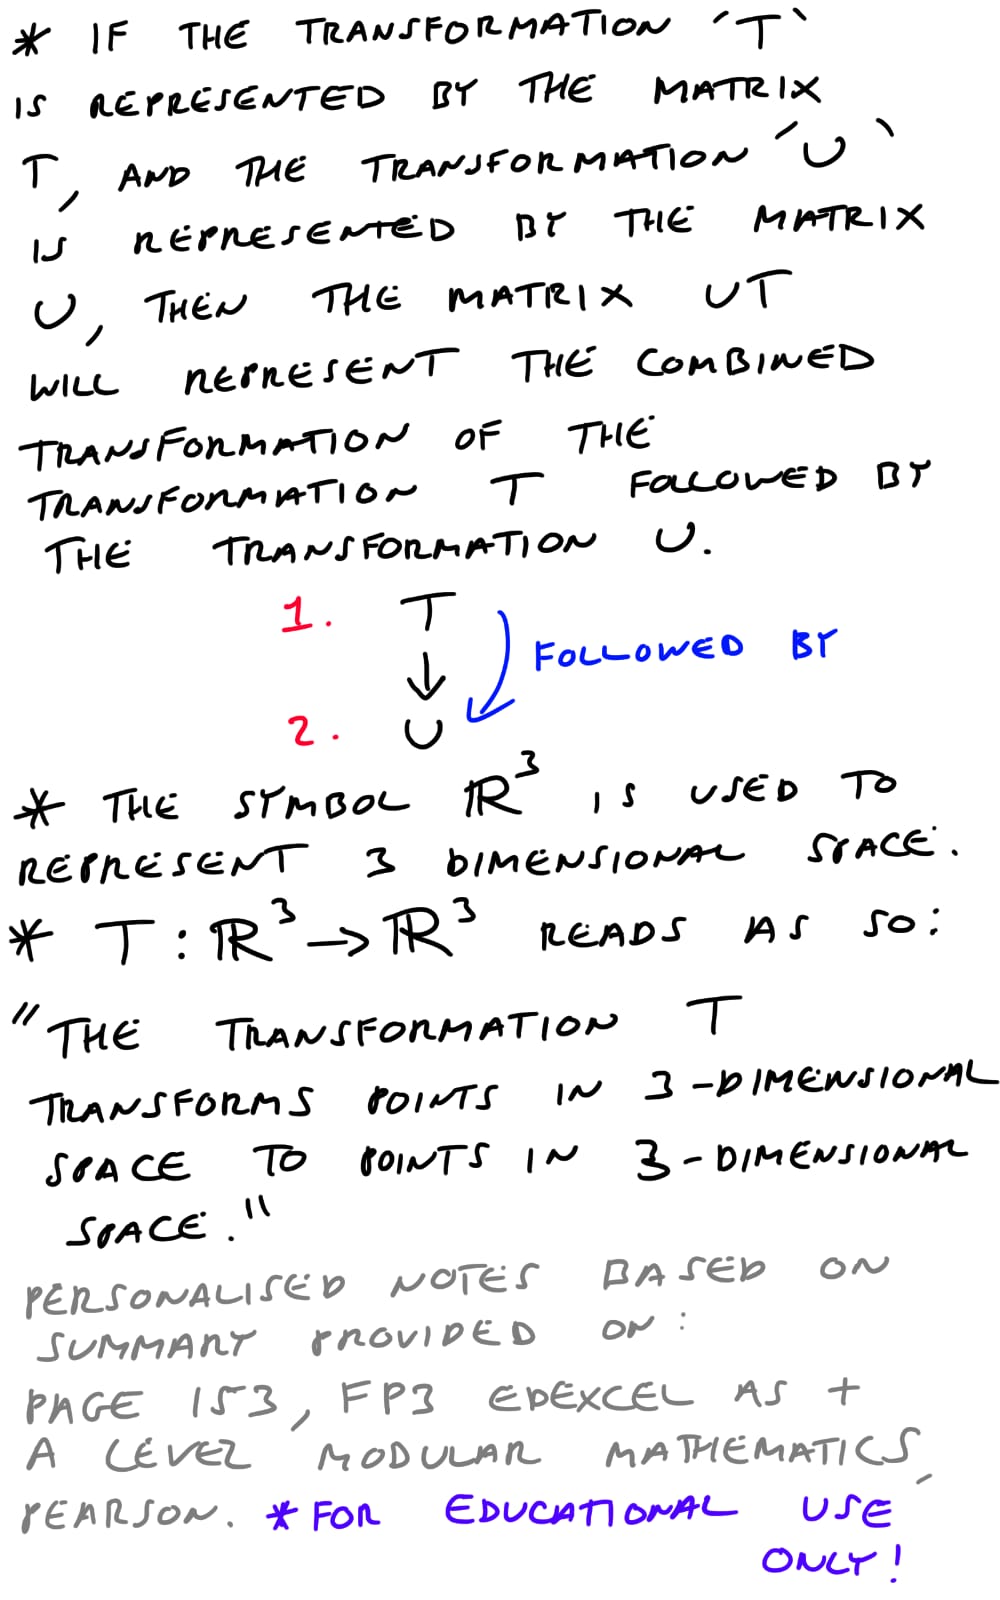 * IF THE TRANSFORMATION ‘T‵
IS REPRESENTED BY THE MATRIX
T, AND THE TRANSFORMATION ‘U‵
IS REPRESENTED BY THE MATRIX
U, THEN THE MATRIX UT
WILL REPRESENT THE COMBINED
TRANSFORMATION OF THE
TRANSFORMATION T FOLLOWED BY
THE TRANSFORMATION U.
1. T
↓ FOLLOWED BY
2. U
* THE SYMBOL ℝ³ IS USED TO
REPRESENT 3 DIMENSIONAL SPACE.
* T : ℝ³ → ℝ³ READS AS SO:
"THE TRANSFORMATION T
TRANSFORMS POINTS IN 3-DIMENSIONAL
SPACE TO POINTS IN 3-DIMENSIONAL
SPACE."
PERSONALISED NOTES BASED ON
SUMMARY PROVIDED ON:
PAGE 153, FP3 EDEXCEL AS +
A LEVEL MODULAR MATHEMATICS,
PEARSON. * FOR EDUCATIONAL USE
ONLY!